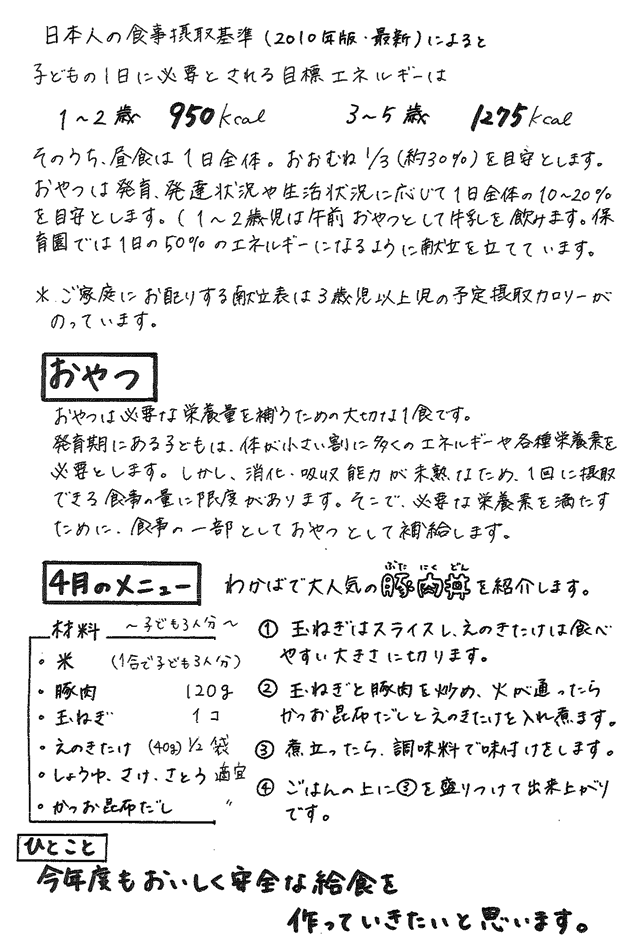 日本人の食事摂取基準(2010年版・最新)によると
子どもの1日に必要とされる目標エネルギーは
1～2歳 950kcal 3～5歳 1275kcal
そのうち、昼食は1日全体。おおむね1/3(約30%)を目安とします。
おやつは発育、発達状況や生活状況に応じて1日全体の10～20%
を目安とします。(1～2歳児は午前おやつとして牛乳を飲みます。保
育園では1日の50%のエネルギーになるように献立を立てています。
* ご家庭にお配りする献立表は3歳児以上児の予定摂取カロリーが
のっています。
おやつ
おやつは必要な栄養量を補うための大切な1食です。
発育期にある子どもは、体が小さい割に多くのエネルギーや各種栄養素を
必要とします。しかし、消化・吸収能力が未熟なため、1回に摂取
できる食事の量に限度があります。そこで、必要な栄養素を満たす
ために、食事の一部としておやつとして補給します。
4月のメニュー わかばで大人気の豚肉丼を紹介します。
ぶた にく どん
材料 ～子ども3人分～
・米 (1合で子ども3人分)
・豚肉 120g
・玉ねぎ 1コ
・えのきたけ (40g) 1/2袋
・しょうゆ、さけ、さとう 適宜
・かつお昆布だし 〃
① 玉ねぎはスライスし、えのきたけは食べ
やすい大きさに切ります。
② 玉ねぎと豚肉を炒め、火が通ったら
かつお昆布だしとえのきたけを入れ煮ます。
③ 煮立ったら、調味料で味付けをします。
④ ごはんの上に③を盛りつけて出来上がり
です。
ひとこと
今年度もおいしく安全な給食を
作っていきたいと思います。